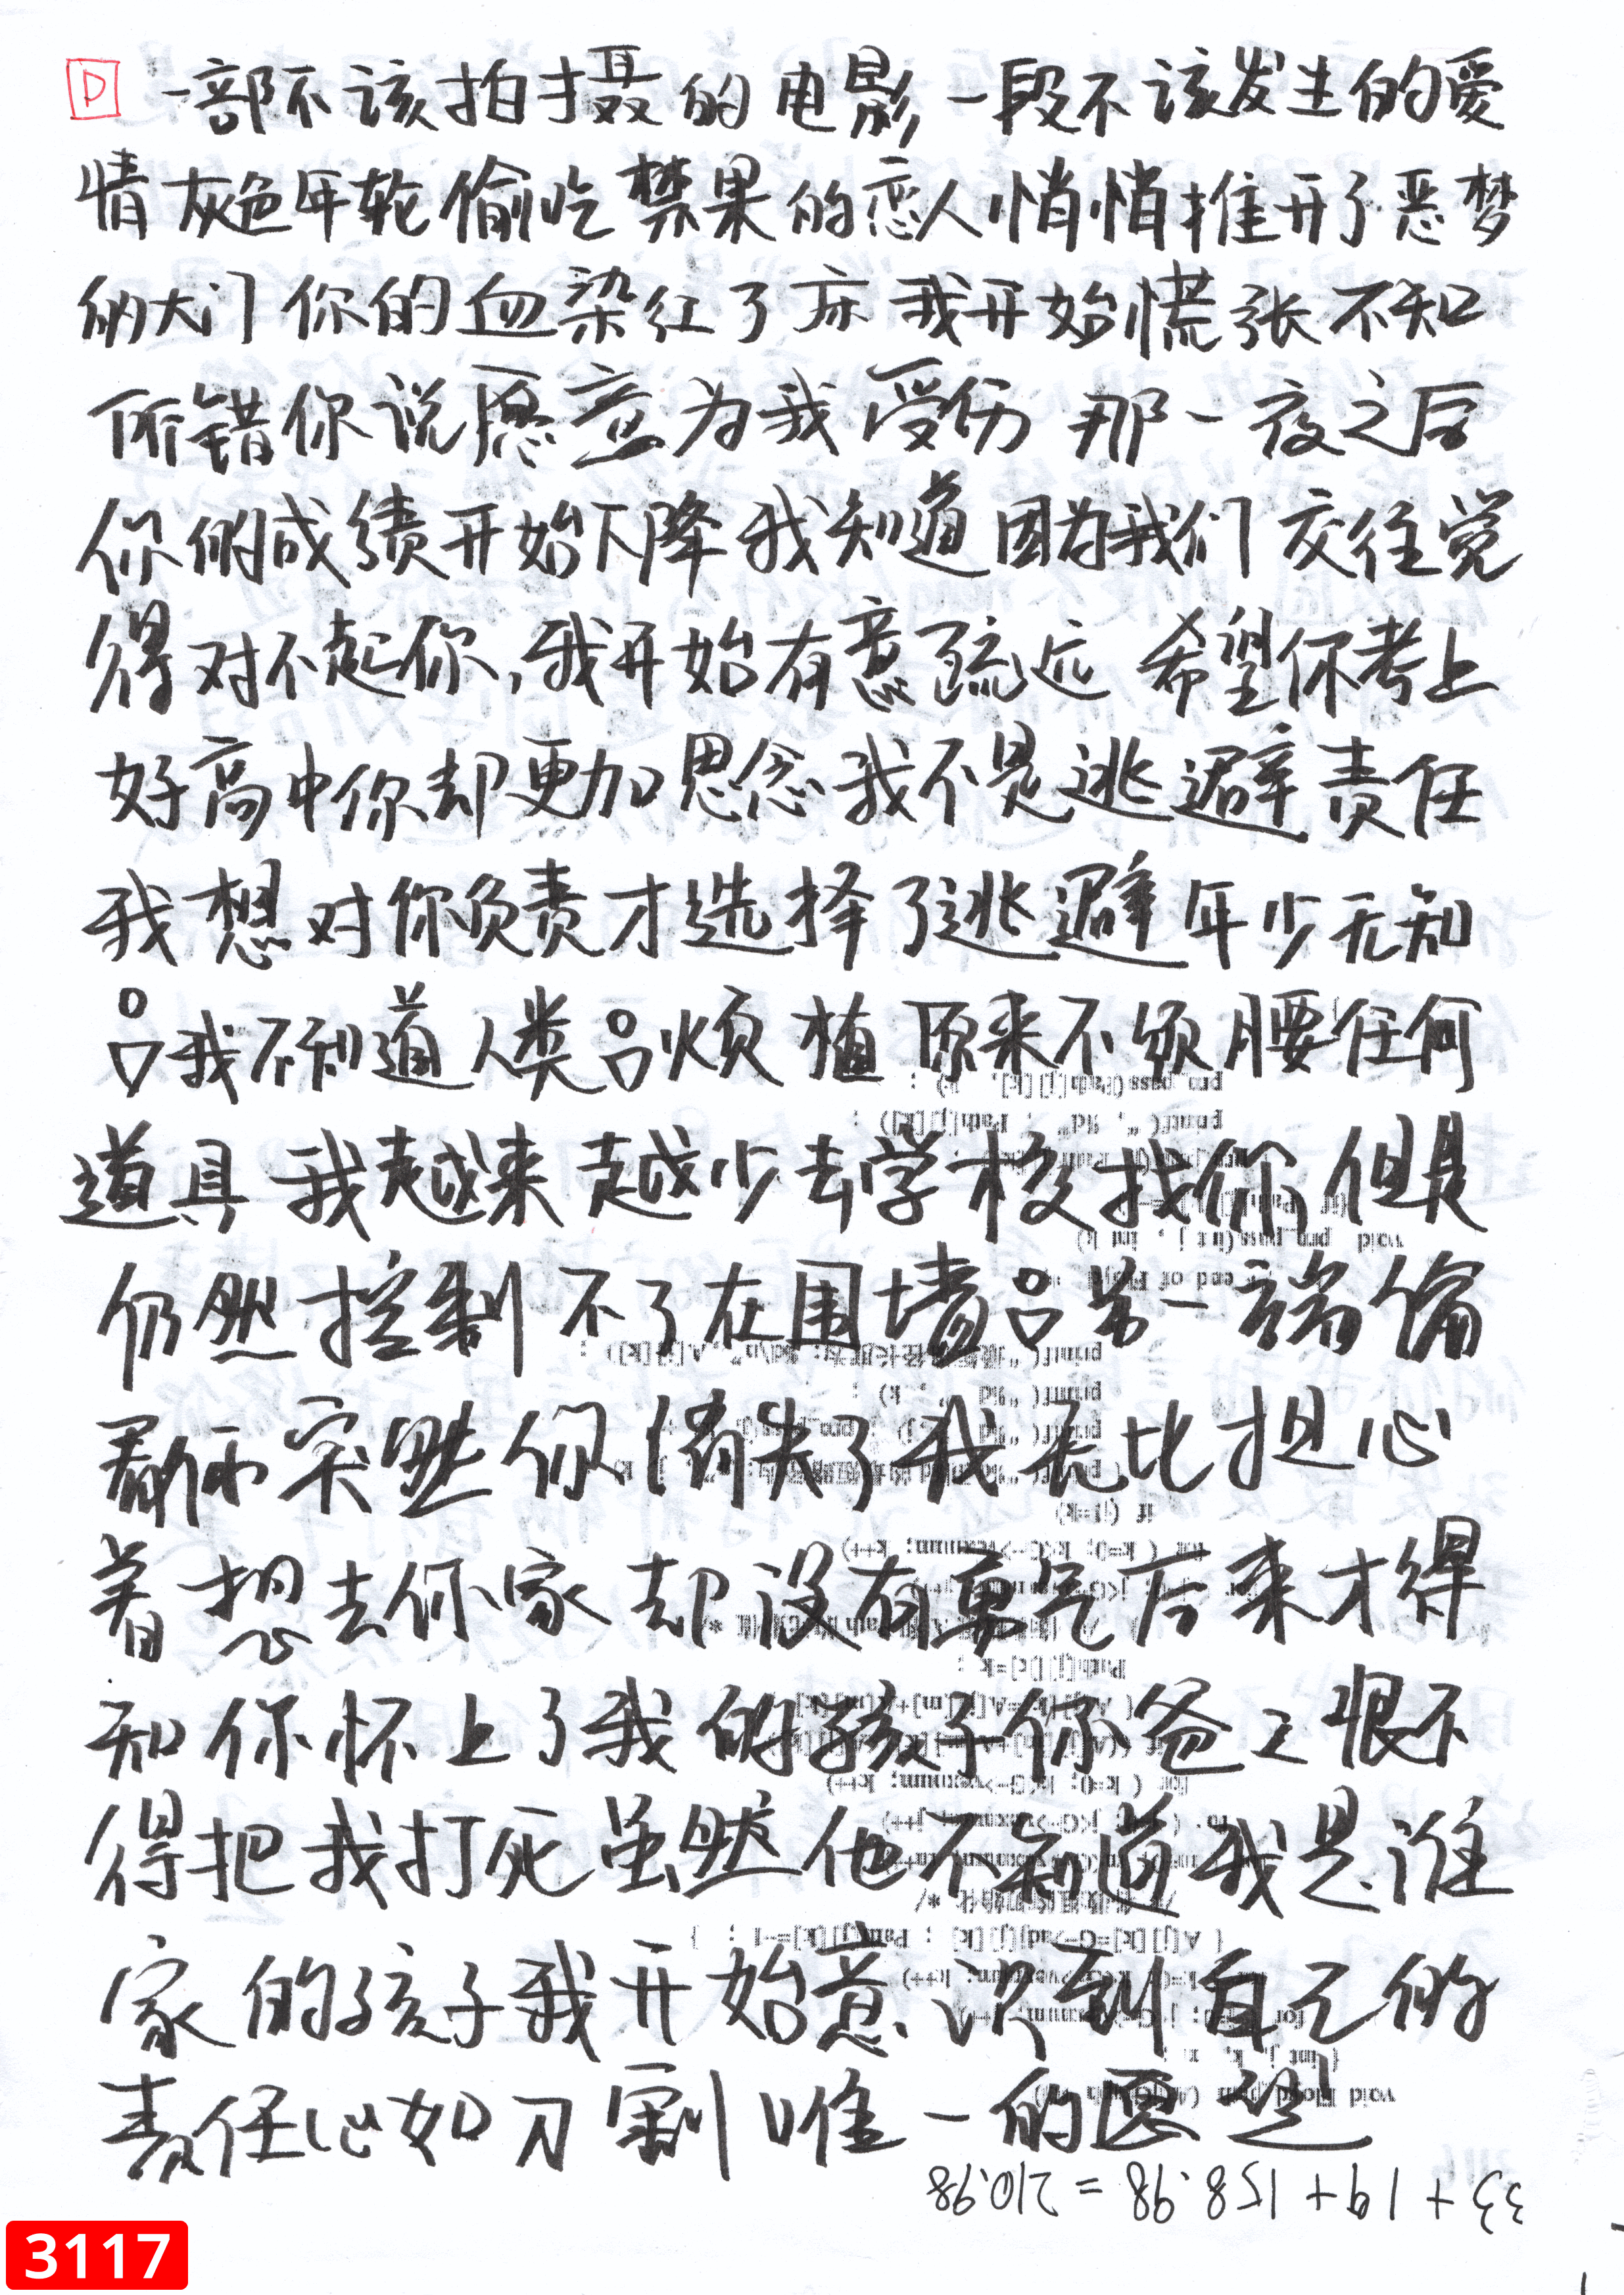 D 一部不该拍摄的电影一段不该发生的爱
情灰色年轮偷吃禁果的恋人悄悄推开了恶梦
的大门你的血染红了床我开始慌张不知
所错你说愿意为我受伤那一夜之后
你的成绩开始下降我知道因为我们交往觉
得对不起你,我开始有意疏远希望你考上
好高中你却更加思念我不是逃避责任
我想对你负责才选择了逃避年少无知
吕我不知道人类吕烦植原来不须腰任何
道具我越来越少去学校找你但是
仍然控制不了在围墙吕另一端偷
看你突然你消失了我无比担心
着想去你家却没有勇气后来才得
知你怀上了我的孩子你爸爸恨不
得把我打死虽然他不知道我是谁
家的孩子我开始意识到自己的
责任心如刀割唯一的愿望
33+19+158.98=210.98
3117